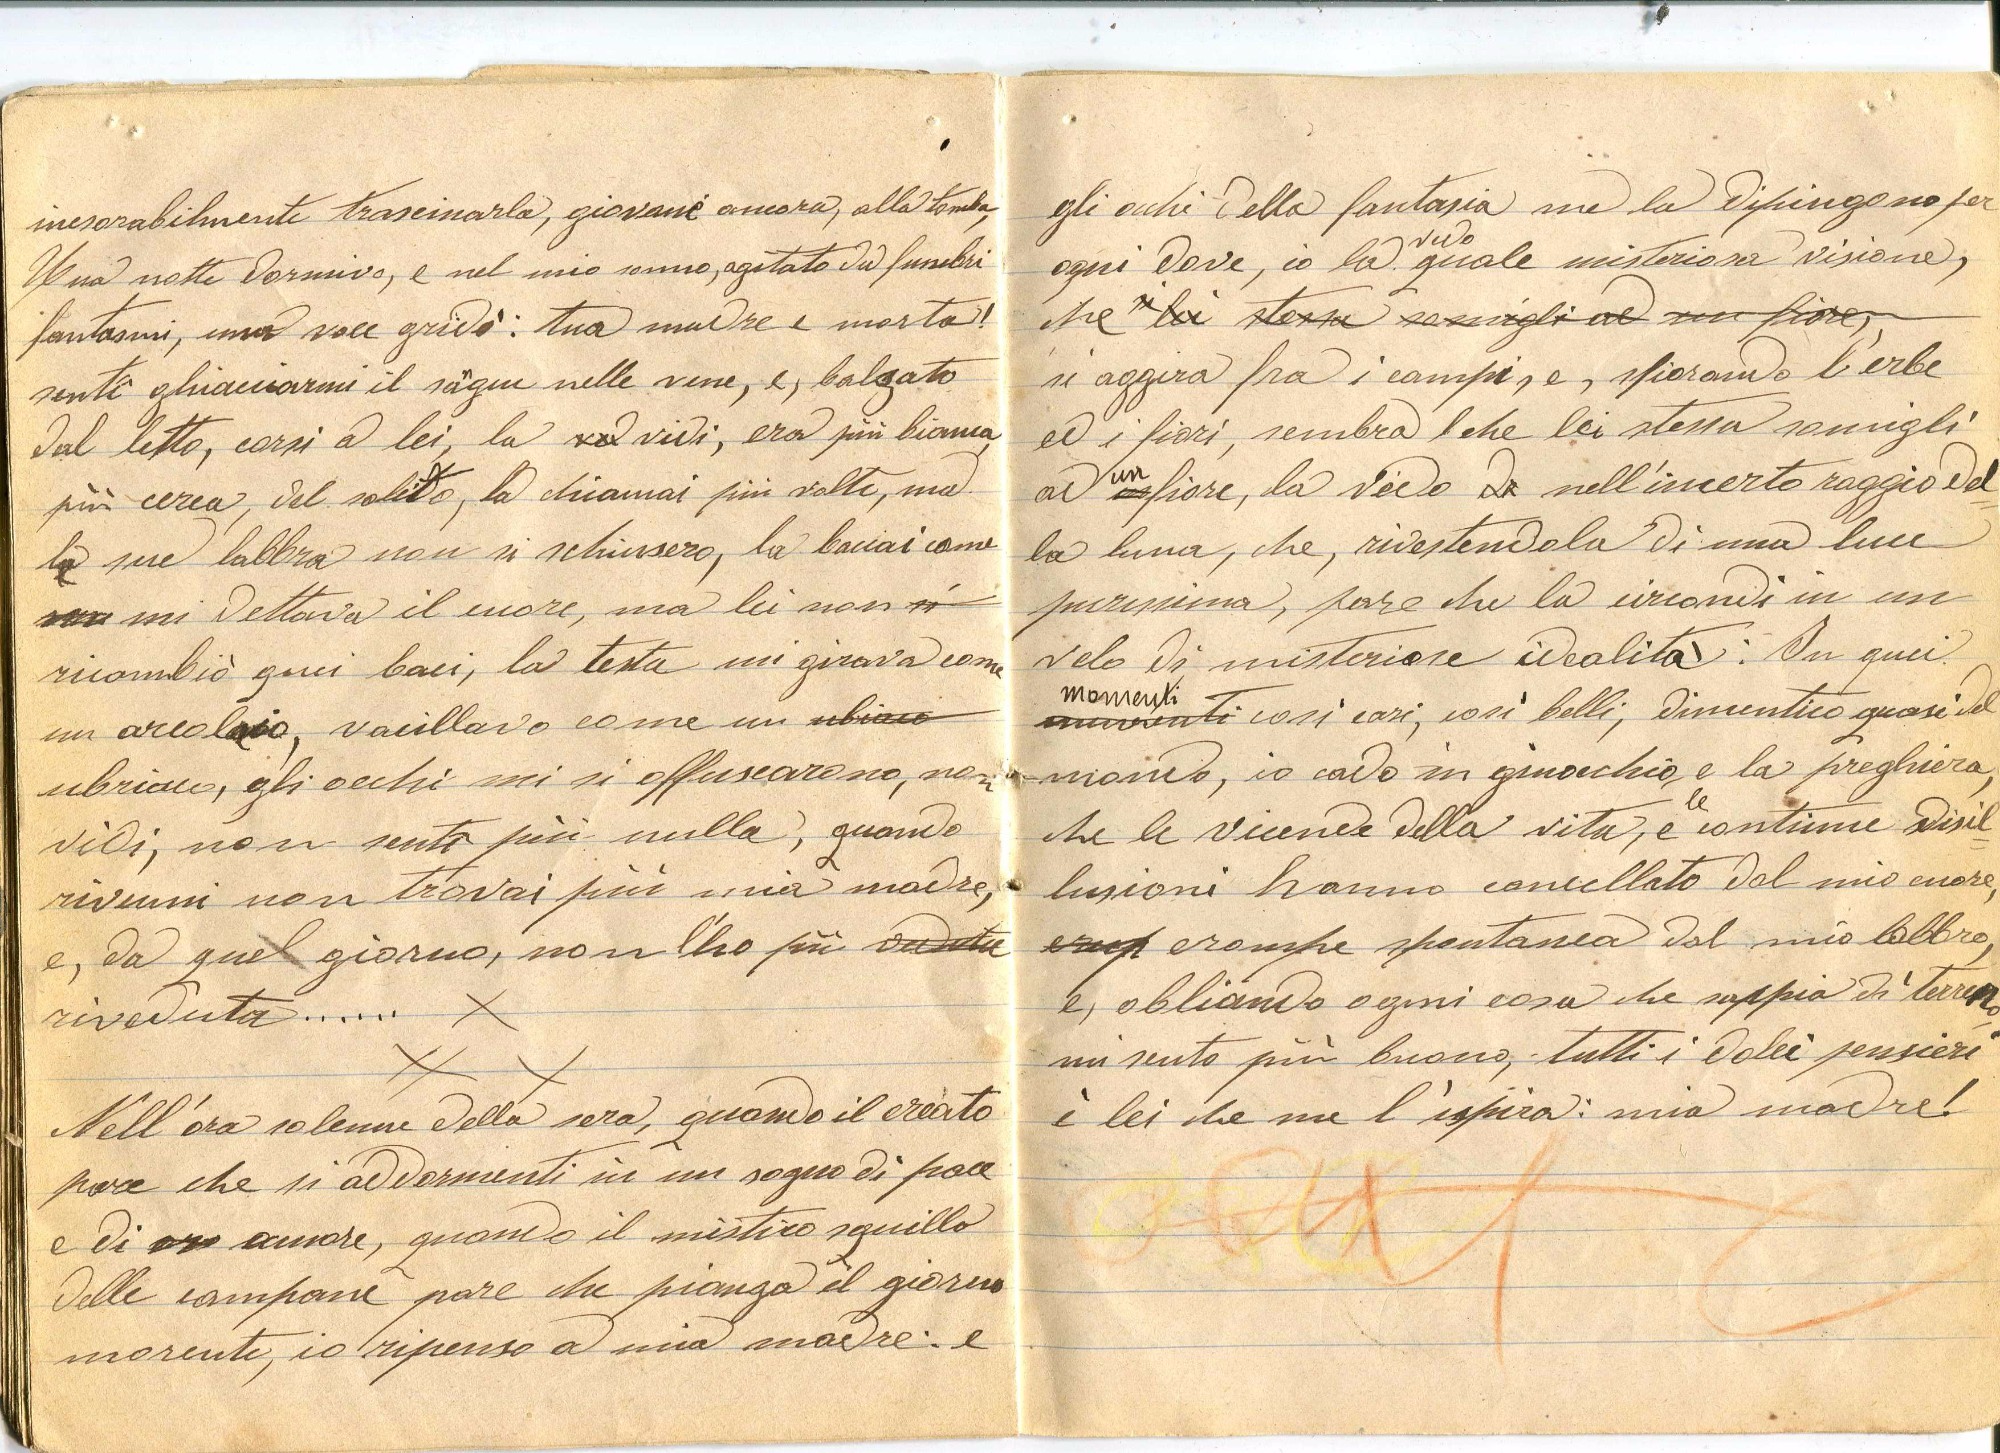 inesorabilmente trascinarla, giovane ancora, alla tomba,
Una notte dormivo, e nel mio sonno, agitato da funebri
fantasmi, una voce gridò: tua madre è morta!
sentî ghiacciarmi il sãgue nelle vene, e, balzato
dal letto, corsi a lei, la vidi, era più bianca,
più cerea, del solito, la chiamai più volte, ma
le sue labbra non si schiusero, la baciai come
mi dettava il cuore, ma lei non si
ricambiò quei baci, la testa mi girava come
un arcolaio, vacillavo come un ubiaco
ubriaco, gli occhi mi si offuscarono, non
vidi, non sentî più nulla, quando
rivenni non trovai più mia madre,
e, da quel giorno, non l'ho più veduta
riveduta...... X
X X
Nell'ora solenne della sera, quando il creato
pare che si addormenti in un sogno di pace
e di amore, quando il mistico squillo
delle campane pare che pianga il giorno
morente, io ripenso a mia madre: e
gli occhi della fantasia me la dipingono per
ogni dove, io la vedo quale misteriosa visione,
che si lei stessa somigli ad un fiore,
si aggira fra i campi, e, sfiorando l'erbe
ed i fiori, sembra che lei stessa somigli
ad un fiore, la vedo nell'incerto raggio del=
la luna, che, rivestendola di una luce
purissima, pare che la circondi in un
velo di misteriose idealità: In quei
momenti così cari, così belli, dimentico quasi del
mondo, io cado in ginocchio, e la preghiera,
che le vicende della vita, e le continue disil=
lusioni hanno cancellato dal mio cuore,
erup erompe spontanea dal mio labbro,
e, obliando ogni cosa che sappia di terreno,
mi sento più buono, tutti i dolci pensieri
è lei che me l'ispira: mia madre!